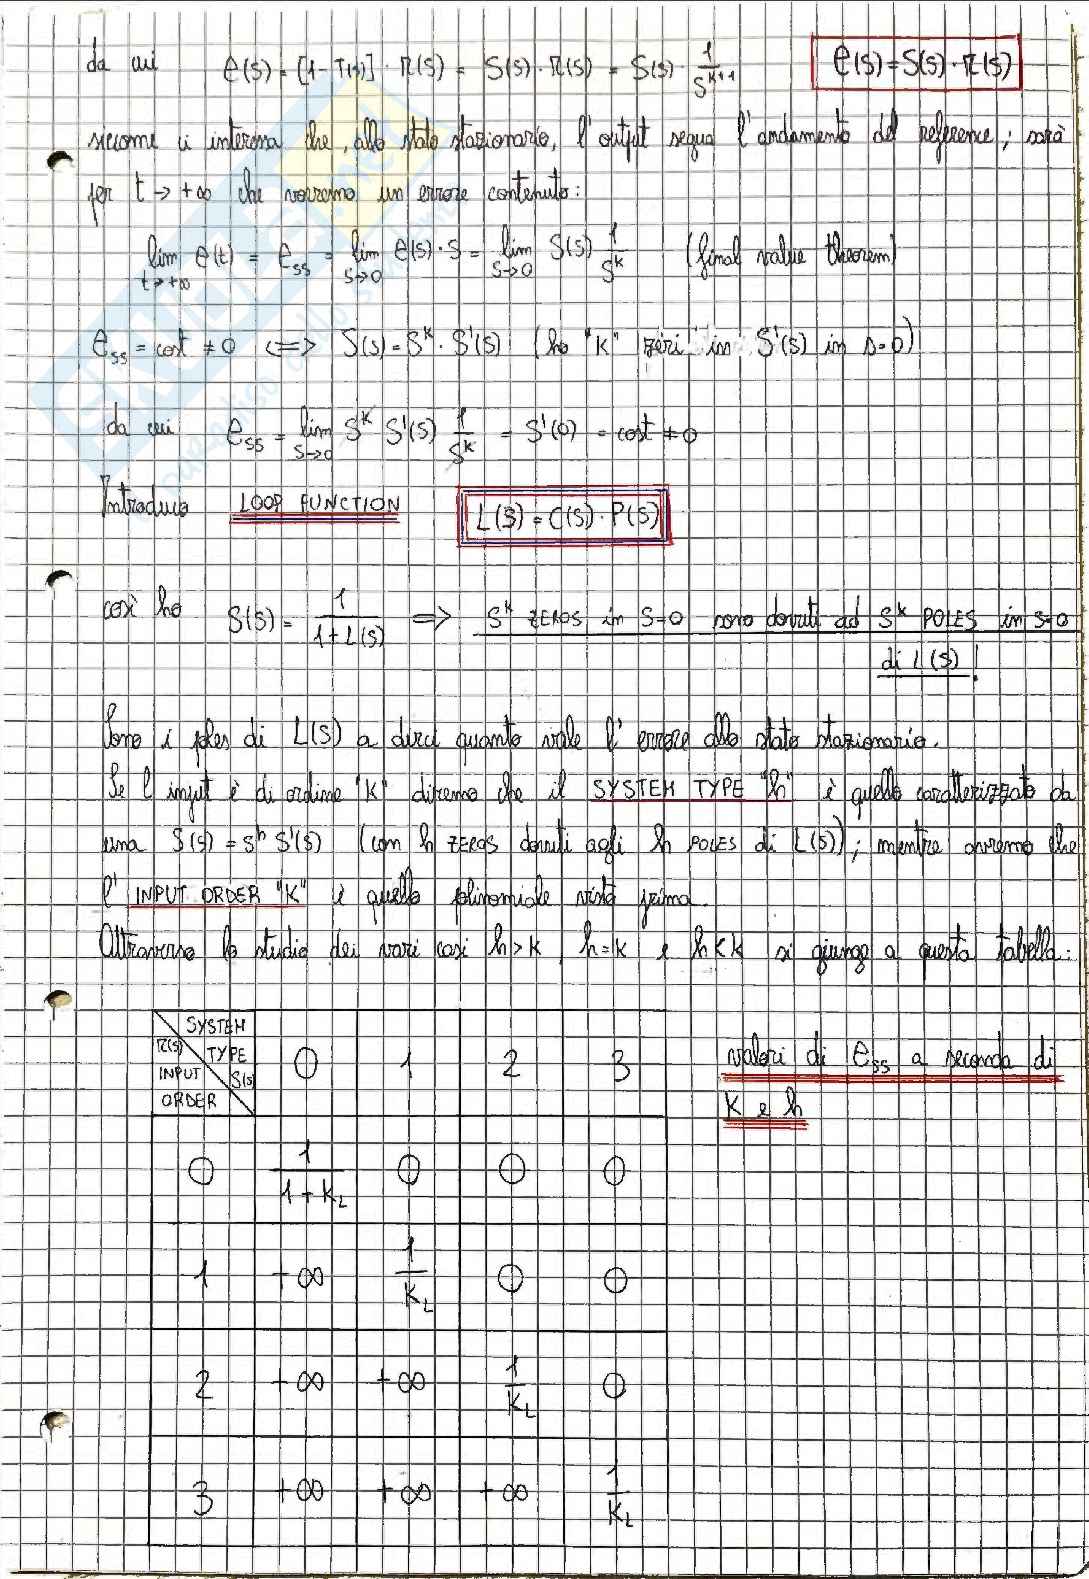 da cui e(s) = [1-T(s)] · r(s) = S(s) · r(s) = S(s) · 1/s^(k+1) e(s) = S(s) · r(s)
siccome ci interessa che, allo stato stazionario, l'output segua l'andamento del reference; sarà
per t → +∞ che vorremo un errore contenuto:
lim t→+∞ e(t) = e_ss = lim s→0 e(s) · s = lim s→0 S(s) 1/s^k (final value theorem)
e_ss = cost ≠ 0 <=> S(s) = s^k · S'(s) (ho "K" zeri in S'(s) in s=0)
da cui e_ss = lim s→0 s^k S'(s) 1/s^k = S'(0) = cost ≠ 0
Introduco LOOP FUNCTION L(s) = C(s) · P(s)
così ho S(s) = 1/(1+L(s)) => s^k ZEROS in s=0 sono dovuti ad s^k POLES in s=0
di L(s)!
Sono i poles di L(s) a dirci quanto vale l'errore allo stato stazionario.
Se l'input è di ordine "K" diremo che il SYSTEM TYPE "h" è quello caratterizzato da
una S(s) = s^h S'(s) (con h ZEROS dovuti agli h POLES di L(s)); mentre avremo che
l'INPUT ORDER "K" è quello polinomiale visto prima.
Attraverso lo studio dei vari casi h>k, h=k e h<k si giunge a questa tabella:
SYSTEM TYPE S(s) r(s) INPUT ORDER 0 1 2 3
valori di e_ss a seconda di
K e h
0 1/(1+K_L) 0 0 0
1 +∞ 1/K_L 0 0
2 +∞ +∞ 1/K_L 0
3 +∞ +∞ +∞ 1/K_L